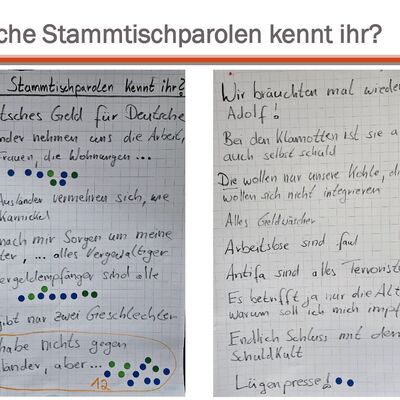 che Stammtischparolen kennt ihr?
Stammtischparolen kennt ihr?
tsches Geld für Deutsche
nder nehmen uns die Arbeit,
Frauen, die Wohnungen ...
Ausländer vermehren sich, wie
Karnickel
mach mir Sorgen um meine
ter, ... alles Vergewaltiger
ergeldempfänger sind alle
gibt nur zwei Geschlechter
habe nichts gegen
länder, aber...
12
Wir bräuchten mal wieder
Adolf!
Bei den Klamotten ist sie a
auch selbst schuld
Die wollen nur unsere Kohle, di
wollen sich nicht integrieren
Alles Geldwäscher
Arbeitslose sind faul
Antifa sind alles Terroriste
Es betrifft ja nur die Alt
warum soll ich mich impf
Endlich Schluss mit dem
Schuldkult
Lügenpresse!